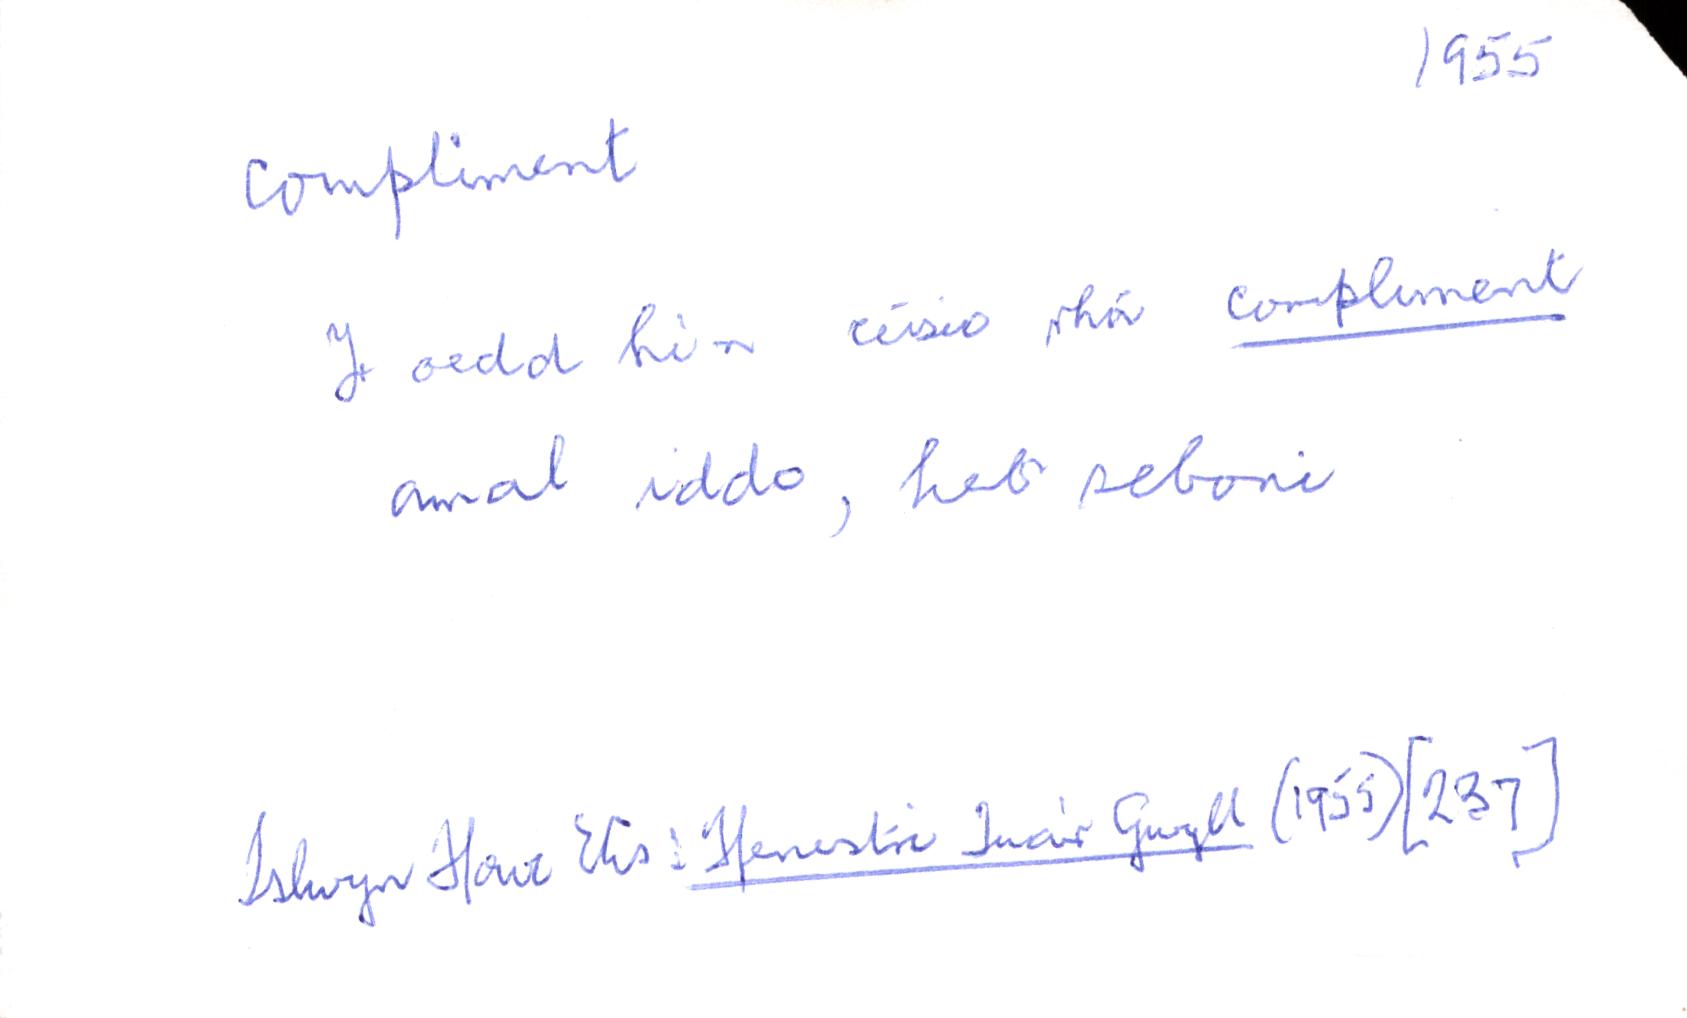 1955
compliment
Yr oedd hi'n ceisio rhoi compliment
amal iddo, heb seboni
Islwyn Ffowc Elis: Ffenestri Tua'r Gwyll (1955) [237]